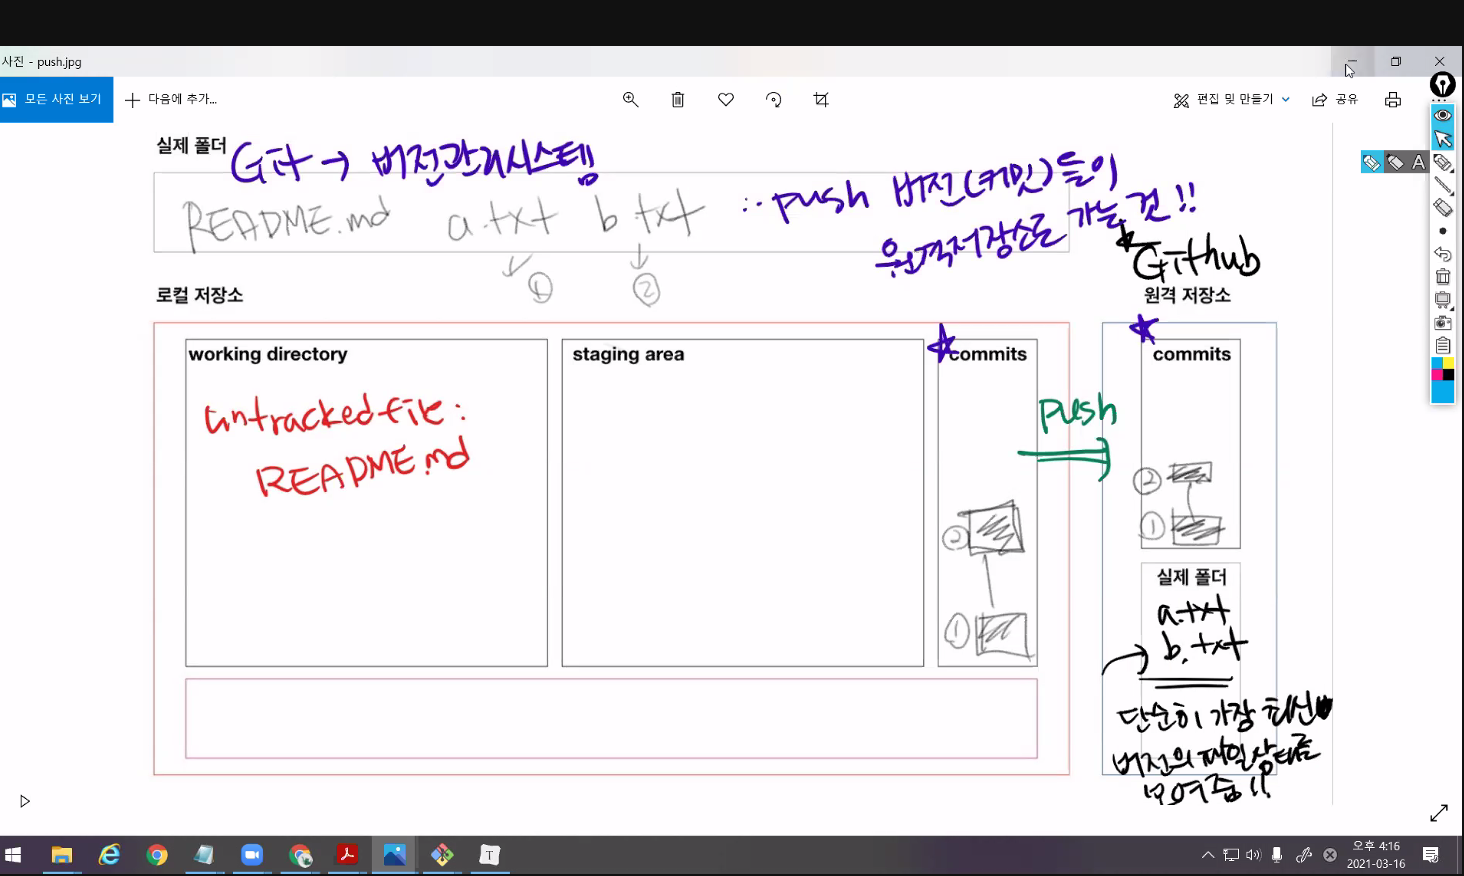 사진 - push.jpg
모든 사진 보기
다음에 추가...
편집 및 만들기
공유
A
실제 폴더
Git → 버전관리시스템
README.md a.txt b.txt
① ②
∴ push 버전(커밋)들이
원격저장소로 가는 것!!
Github
로컬 저장소
원격 저장소
working directory
untracked file:
README.md
staging area
commits
②
①
push
commits
②
①
실제 폴더
a.txt
b.txt
단순히 가장 최신
버전의 파일상태를
보여줌!!
T
오후 4:16
2021-03-16